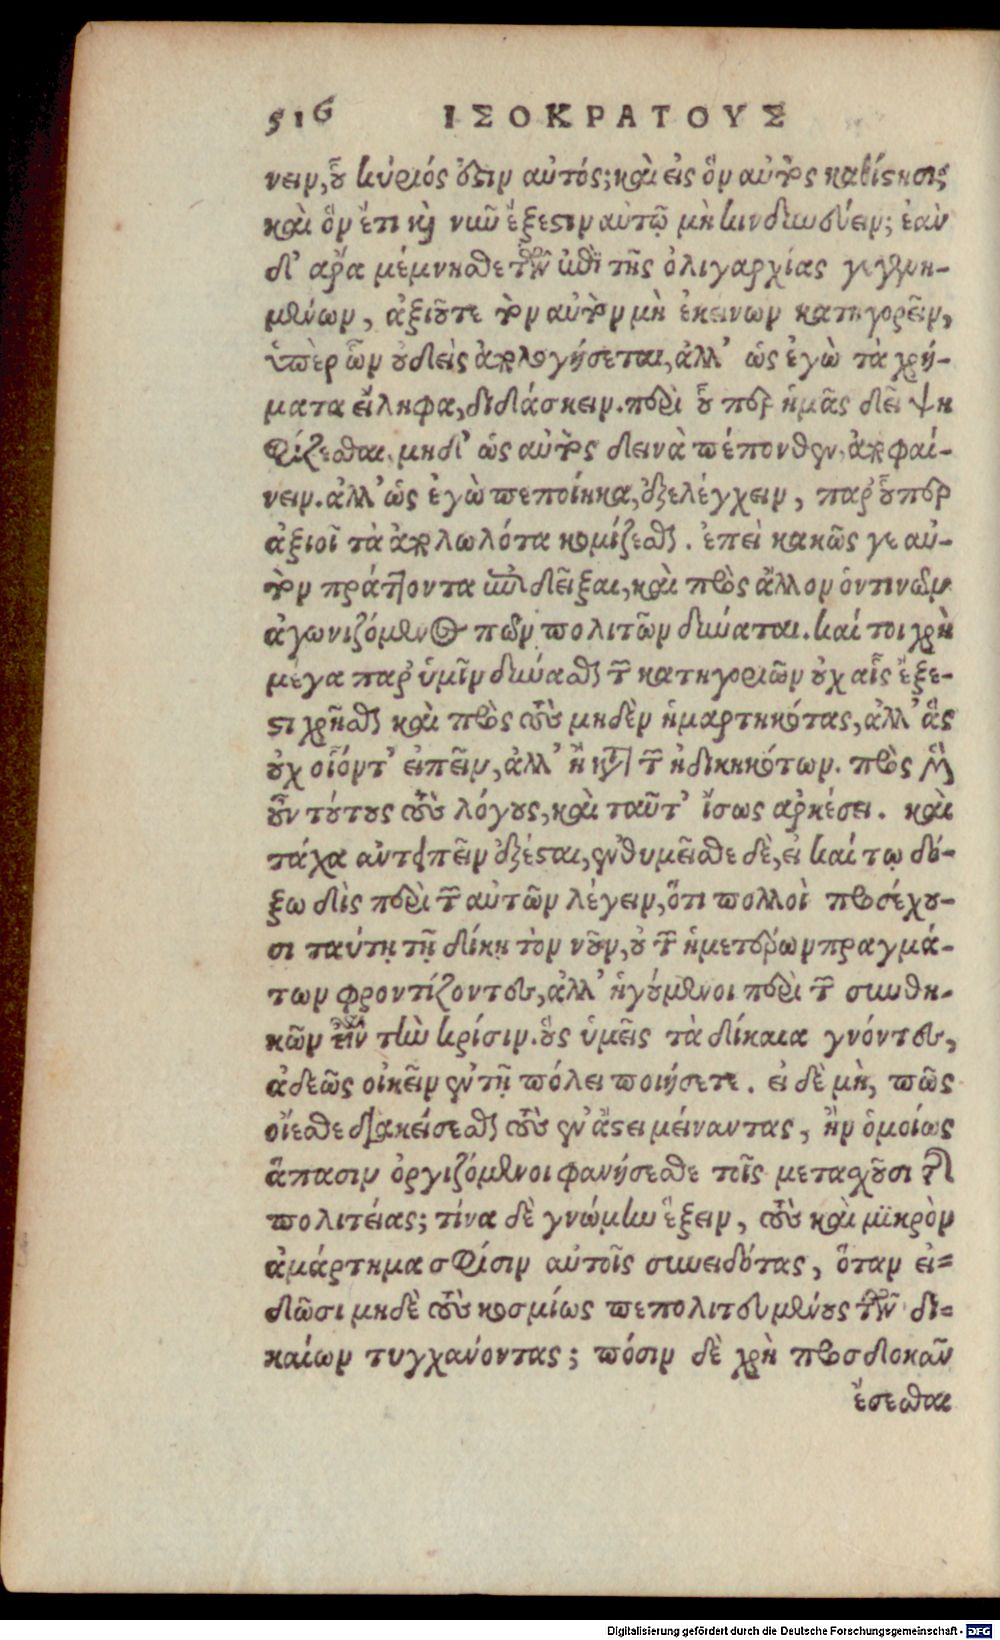 516 ΙΣΟΚΡΑΤΟΥΣ
νειν, οὗ κύριός ἐστιν αὐτός; καὶ εἰς ὃν αὐτὸς καθίστησι,
καὶ ὃν ἔτι καὶ νῦν ἔξεστιν αὐτῷ μὴ κινδυνεύειν; ἐὰν
δ' ἄρα μέμνησθε τῶν ἐπὶ τῆς ὀλιγαρχίας γεγενη-
μένων, ἀξιοῦτε τοῦτον αὐτὸν μὴ ἐκείνων κατηγορεῖν,
ὑπὲρ ὧν οὐδεὶς ἀπολογήσεται, ἀλλ' ὡς ἐγὼ τὰ χρή-
ματα εἴληφα, διδάσκειν. περὶ οὗ περ ἡμᾶς δεῖ ψη
φίζεσθαι. μηδ' ὡς αὐτὸς δεινὰ πέπονθεν, ἀποφαί-
νειν. ἀλλ' ὡς ἐγὼ πεποίηκα, ἐξελέγχειν, παρ' οὗπερ
ἀξιοῖ τὰ ἀπολωλότα κομίζεσθαι. ἐπεὶ κακῶς γε αὐ-
τὸν πράττοντα ἐπιδεῖξαι, καὶ πρὸς ἄλλον ὁντινοῦν
ἀγωνιζόμενος τῶν πολιτῶν δύναται. καί τοι χρὴ
μέγα παρ' ὑμῖν δύνασθαι τῶν κατηγοριῶν οὐχ αἷς ἔξε-
στι χρῆσθαι καὶ πρὸς τοὺς μηδὲν ἡμαρτηκότας, ἀλλ' ἃς
οὐχ οἷόντ' εἰπεῖν, ἀλλ' ἢ κατὰ τῶν ἠδικηκότων. πρὸς μὲν
οὖν τούτους τοὺς λόγους, καὶ ταῦτ' ἴσως ἀρκέσει. καὶ
τάχα ἀντειπεῖν ἐξέσται, ἐνθυμεῖσθε δὲ, εἰ καί τῳ δό-
ξω δὶς περὶ τῶν αὐτῶν λέγειν, ὅτι πολλοὶ προσέχου-
σι ταύτῃ τῇ δίκῃ τὸν νοῦν, οὐ τῶν ἡμετέρων πραγμά-
των φροντίζοντες, ἀλλ' ἡγούμενοι περὶ τῶν συνθη-
κῶν εἶναι τὴν κρίσιν. οὓς ὑμεῖς τὰ δίκαια γνόντες,
ἀδεῶς οἰκεῖν ἐν τῇ πόλει ποιήσετε. εἰ δὲ μὴ, πῶς
οἴεσθε διακείσεσθαι τοὺς ἐν ἄστει μείναντας, ἢν ὁμοίως
ἅπασιν ὀργιζόμενοι φανήσεσθε τοῖς μετασχοῦσι τῆς
πολιτείας; τίνα δὲ γνώμην ἕξειν, τοὺς καὶ μικρὸν
ἁμάρτημα σφίσιν αὐτοῖς συνειδότας, ὅταν εἰ-
δῶσι μηδὲ τοὺς κοσμίως πεπολιτευμένους τῶν δι-
καίων τυγχάνοντας; πόσην δὲ χρὴ προσδοκᾶν
ἔσεσθαι
Digitalisierung gefördert durch die Deutsche Forschungsgemeinschaft - DFG